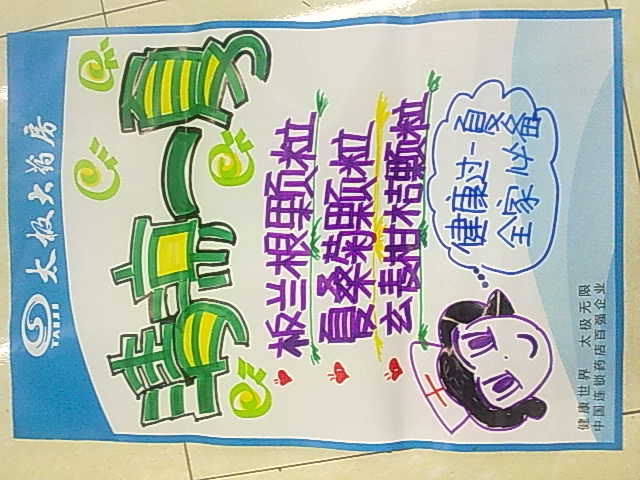 太极大药房
清凉一夏
板兰根颗粒
夏桑菊颗粒
玄麦柑桔颗粒
健康过一夏
全家必备
健康世界 太极无限
中国连锁药店百强企业